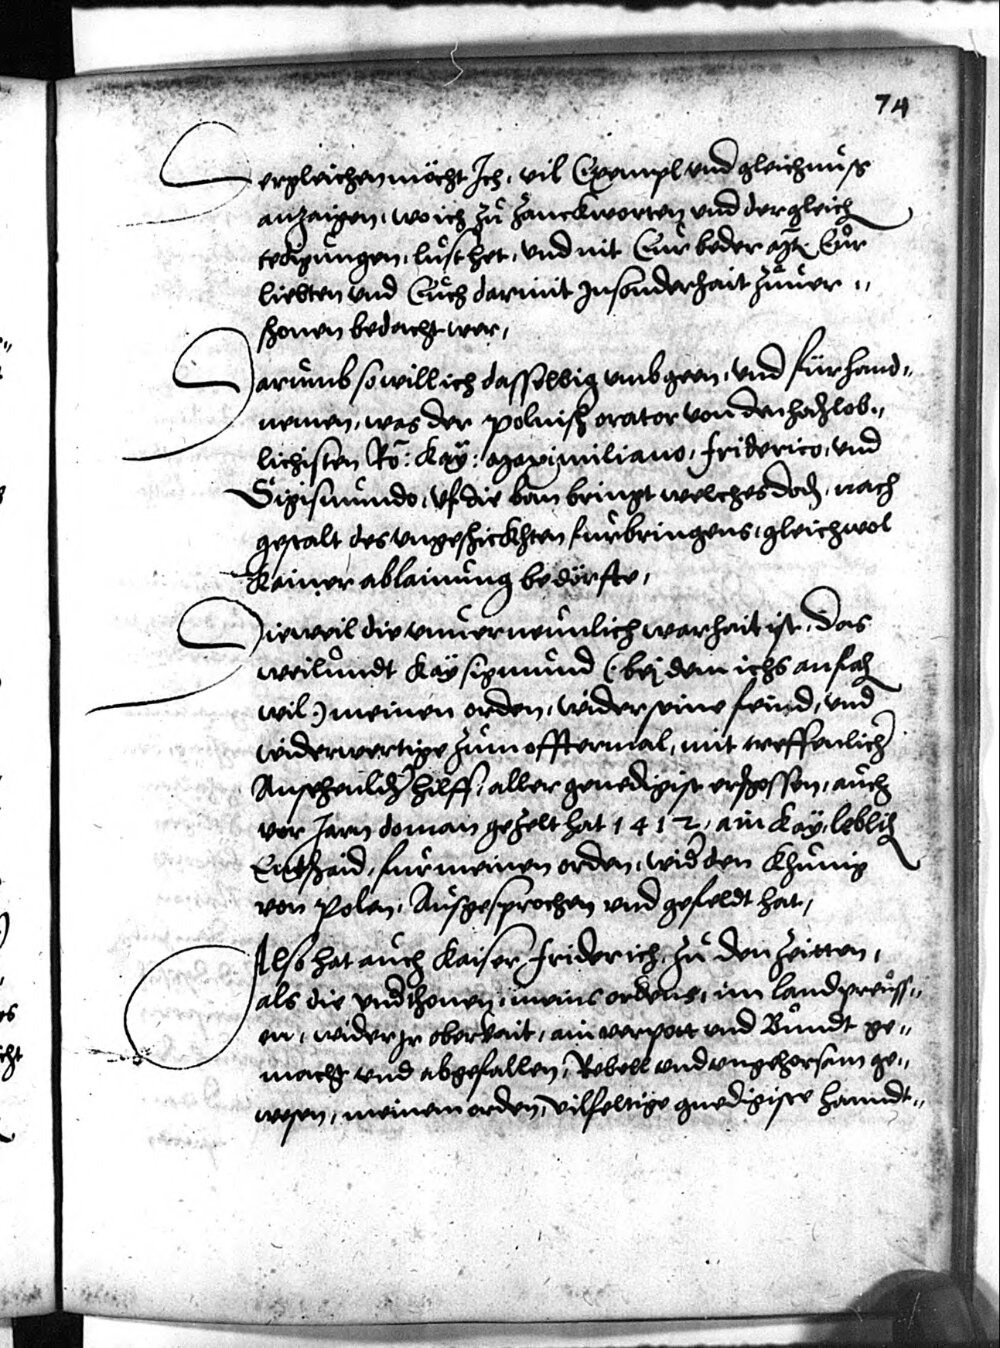 74
Dergleichen möcht Ich, vil Exempl und gleichnuß
anzaigen, wo ich zu zanckworten und dergleich
tedigungen, lust het, und nit Eur beder Mt. Eur
liebten und Euch darmit Insonderhait zuuer,,
shonen bedacht wer,
Darumb so will ich dasselbig umbgeen, und für hand,,
nemen, was der Polnish orator von den hochlob,,
lichisten Rö: Kay: Maximiliano, friderico, und
Sigismundo, uf die ban bringt welches doch, nach
gestalt des ungeshickhten furbringens, gleichwol
kainer ablainung bedörfte,
Dieweil die unuerneinlich warhait ist, das
weilundt Kay Sigmund (: bej dem ichs anfah
wil:) meinen orden, wider seine feind, und
widerwertige zum offtermal, mit treffenlich
Ansehenlich hilff, aller genedigist ershossen, auch
vor Jarn do man gezelt hat 1412, ain Kay: leblich
Entshaid, fur meinen orden, wid den Khunig
von Polen, Ausgesprochen und gefeldt hat,
Also hat auch Kaiser friderich, zu den Zeitten,
als die undthonen, meins ordens, im land preuss,,
en, wider Ir oberkait, ain verpott und Bundt ge,,
macht und abgefallen, Rebell und ungehorsam ge,,
wesen, meinem orden, vilfeltige gnedigiste hanndt,,